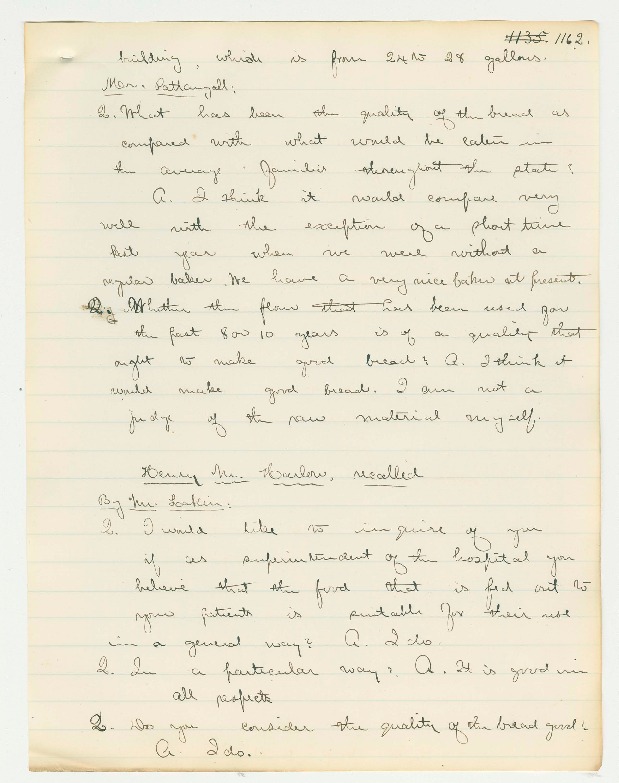 1135. 1162.
building, which is from 24 to 28 gallons.
Mr. Pattangall:
Q. What has been the quality of the bread as
compared with what would be eaten in
the average families throughout the state?
A. I think it would compare very
well with the exception of a short time
last year when we were without a
regular baker. We have a very nice baker at present.
Q. Whether the flour that has been used for
the past 8 or 10 years is of a quality that
ought to make good bread? A. I think it
would make good bread. I am not a
judge of the raw material myself.
Henry M. Harlow, recalled
By Mr. Larkin:
Q. I would like to inquire of you
if as superintendent of the hospital you
believe that the food that is fed out to
your patients is suitable for their use
in a general way? A. I do.
Q. In a particular way? A. It is good in
all respects
Q. Do you consider the quality of the bread good?
A. I do.